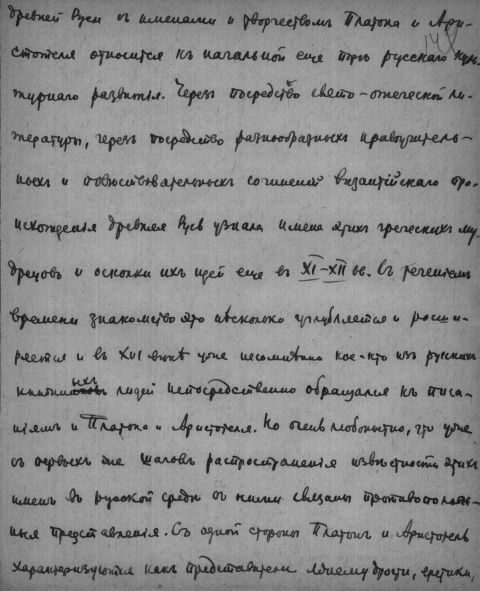 древней Руси съ именами и творчествомъ Платона и Ари-
стотеля относится къ начальной еще поре русскаго куль-
турнаго развитія. Черезъ посредство свято-отеческой ли-
тературы, черезъ посредство разнообразныхъ нравоучитель-
ныхъ и повѣствовательныхъ сочиненій византійскаго про-
исхожденія древняя Русь узнала имена этихъ греческихъ му-
дрецовъ и осколки ихъ идей еще въ XI–XII вв. Съ теченіемъ
времени знакомство это нѣсколько углубляется и расши-
ряется и въ XVI вѣкѣ уже несомнѣнно кое-кто изъ русских
книжныхъ людей непосредственно обращался къ писа-
ніямъ и Платона и Аристотеля. Но очень любопытно, что уже
съ первыхъ же шаговъ распространенія извѣстности этихъ
именъ въ русской средѣ съ ними связаны противополож-
ныя представленія. Съ одной стороны Платонъ и Аристотель
характеризуются какъ представители лжемудрости, еретики,